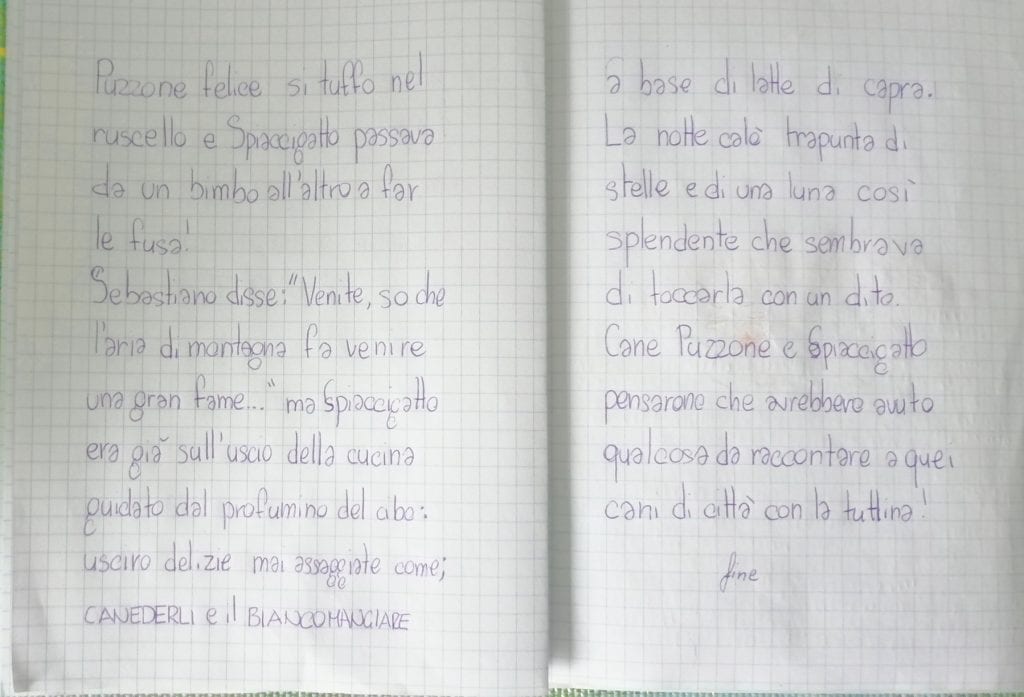 Puzzone felice si tuffo nel
ruscello e Spiaccigatto passava
da un bimbo all'altro a far
le fusa!
Sebastiano disse: "Venite, so che
l'aria di montagna fa venire
una gran fame..." ma Spiaccigatto
era già sull'uscio della cucina
guidato dal profumino del cibo:
usciro delizie mai assaggiate come;
CANEDERLI e il BIANCOMANGIARE
a base di latte di capra.
La notte calò trapunta di
stelle e di una luna così
splendente che sembrava
di toccarla con un dito.
Cane Puzzone e Spiaccigatto
pensarono che avrebbero avuto
qualcosa da raccontare a quei
cani di città con la tuttina!
fine